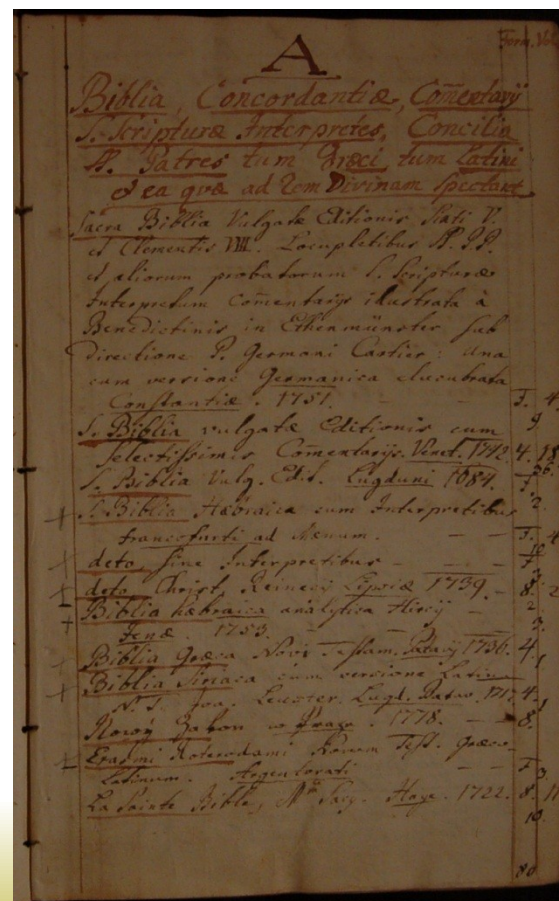 Form. Vol
A
Biblia, Concordantiæ, Com̃entarij
S. Scripturæ Interpretes, Concilia
SS. Patres tum Græci tum Latini
& ea quæ ad Rem Divinam spectant
Sacra Biblia Vulgatæ Editionis Sixti V.
et Clementis VIII. Locupletibus SS. PP.
et aliorum probatorum S. Scripturæ
Interpretum Com̃entarijs illustrata à
Benedictinis in Ethenmünster sub
directione P. Germani Cartier: una
cum versione Germanica elucubrata
Constantiæ. 1751. F. 4
S. Biblia vulgatæ Editionis cum
selectissimis Com̃entarijs. Venet. 1742. 4. 28
S. Biblia Vulg. Edit. Lugduni 1684. F.
S. Biblia Hebraica cum Interpretibus
francofurti ad Mænum. — — F. 4
deto, sine Interpretibus — — F
deto Christ. Reinecij Lipsiæ 1739. — 8. 2
Biblia hæbraica analytica Hircij —
Jenæ. 1753. —
Biblia Græca Novi Testam. Patavij 1736. 4.
Biblia Siriaca cum versione Latina
N. T. Joa. Leuster. Lugd. Batav. 1717. 4.
Nowý Zakon w Praze. 1778. — 8.
Erasmi Roterodami Novum Test. Græco-
Latinum. Argentorati — — F
La Sainte Bible, Haye. 1722. 8. 11
10.
80